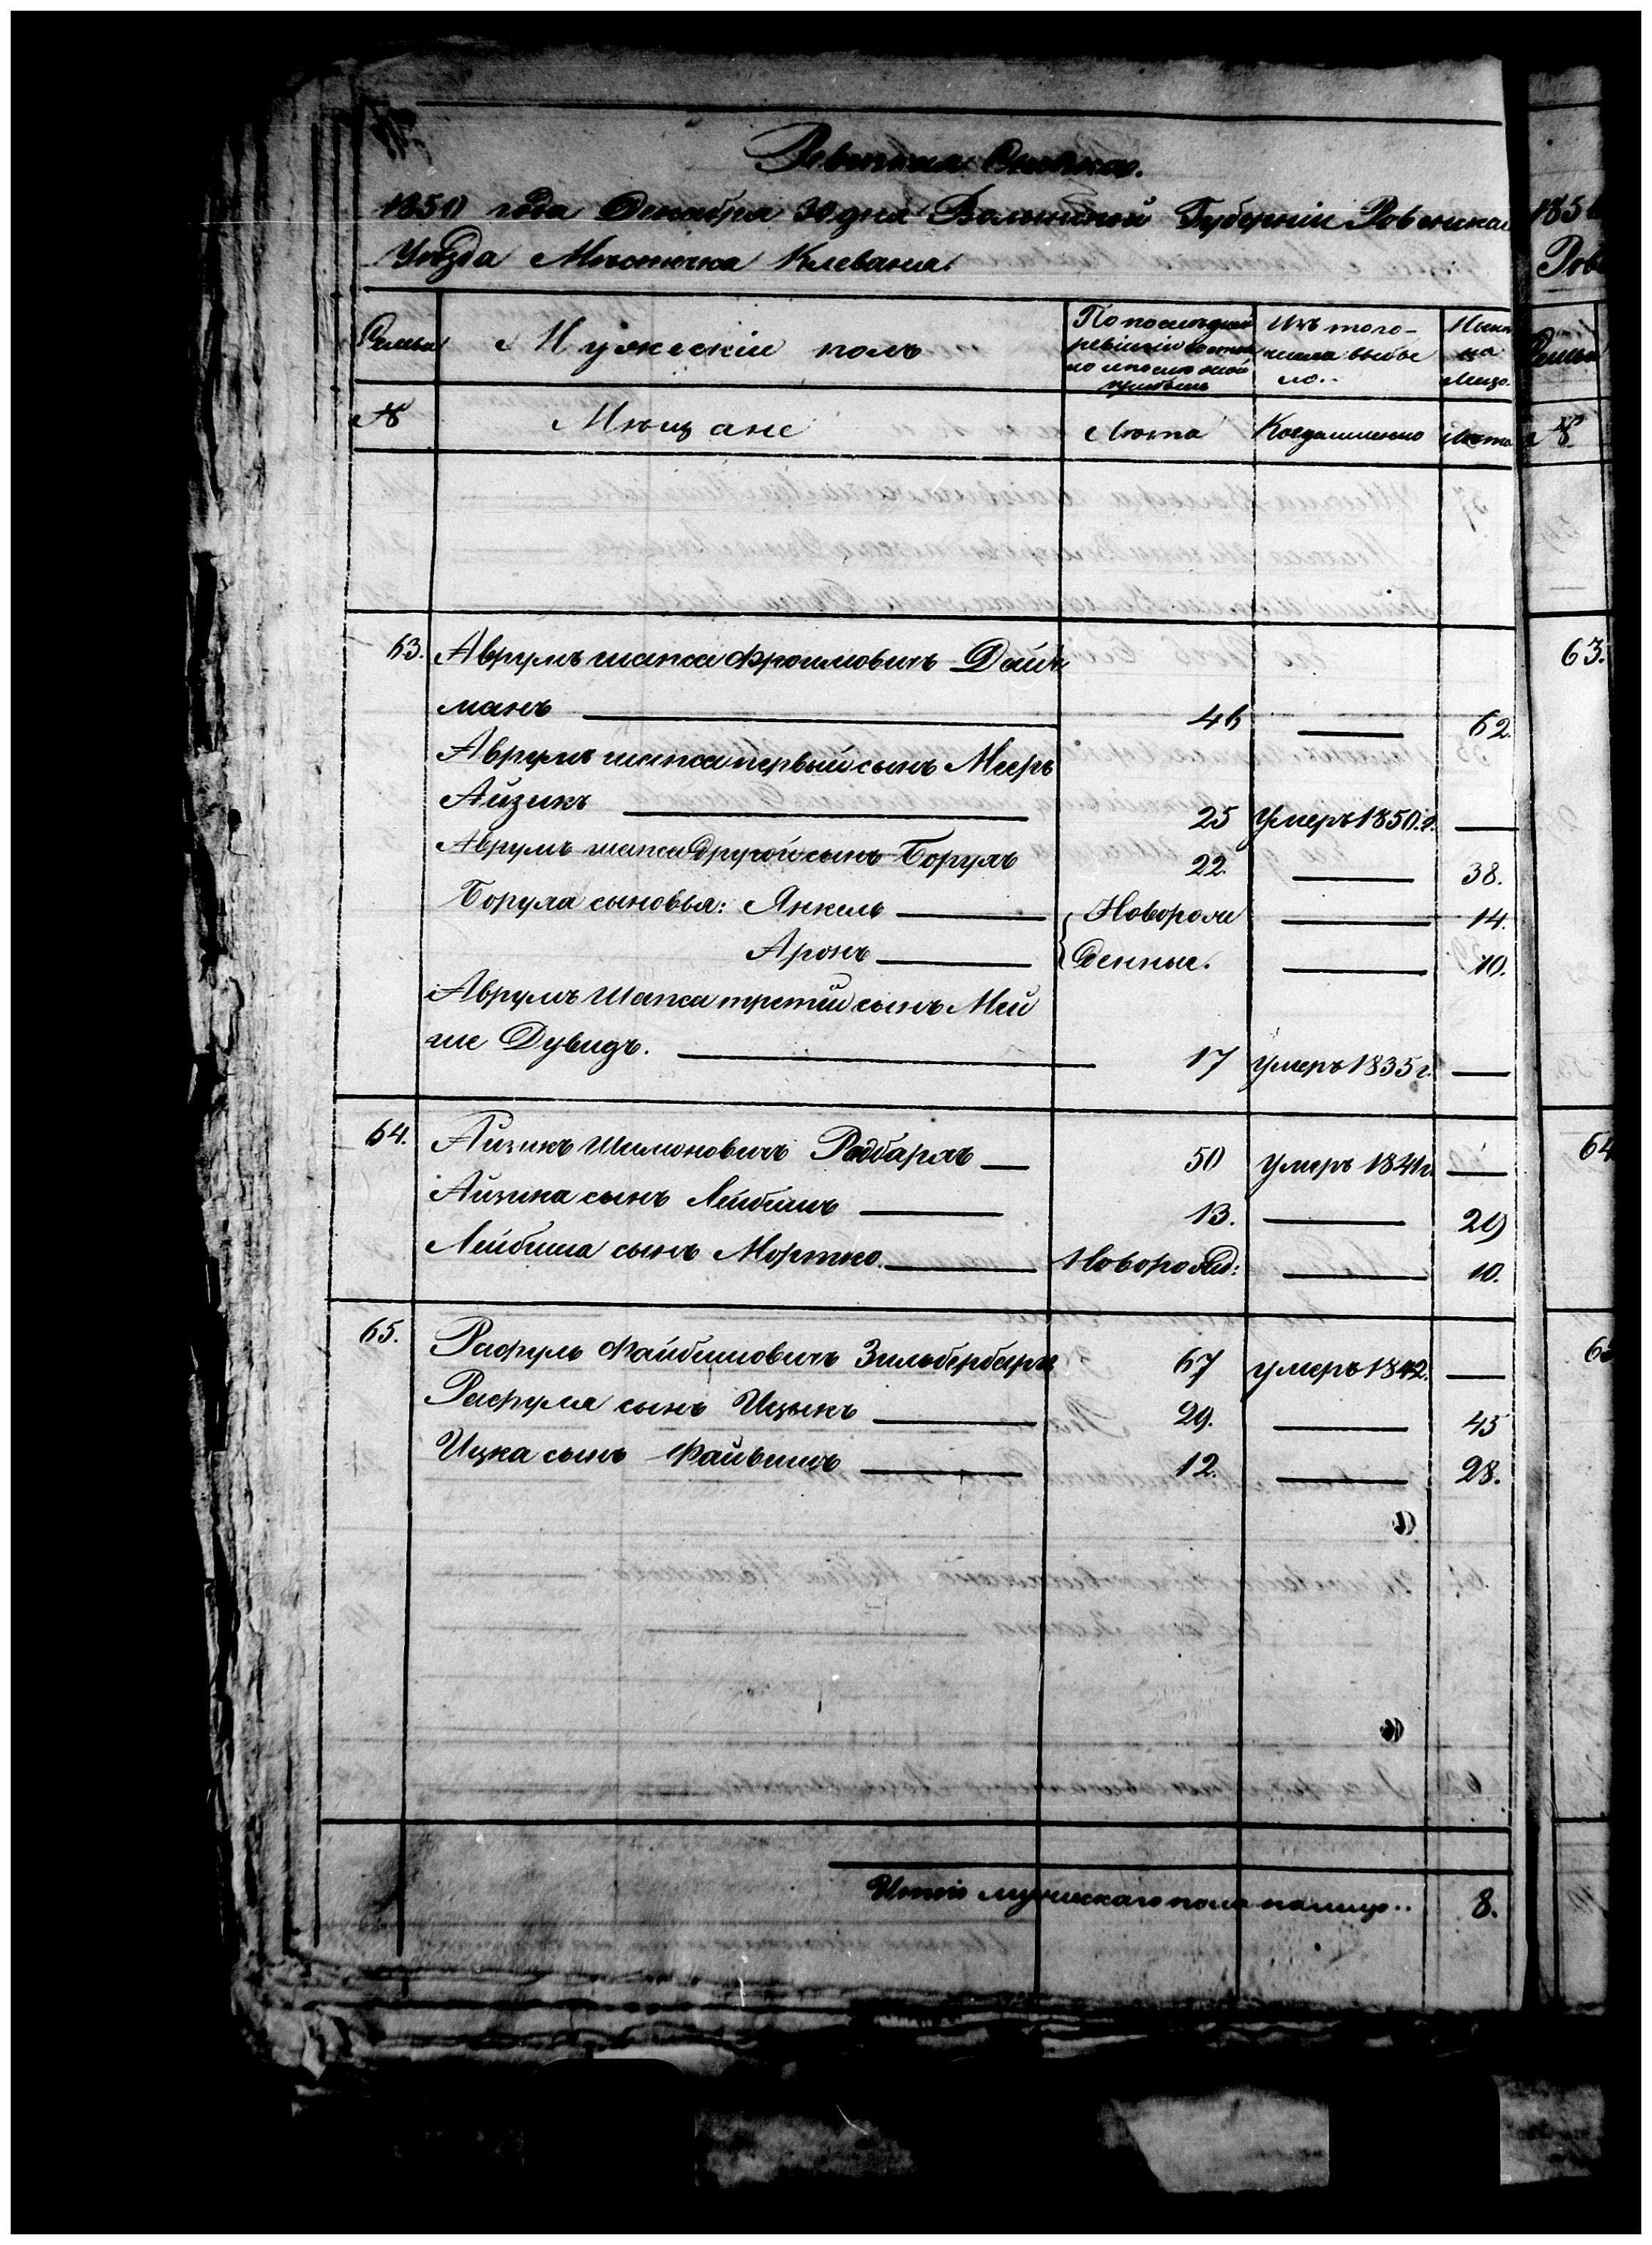 Ревизская Сказка.
1850 года Декабря 30 дня Волынской Губерніи Ровенска
Уѣзда Мѣстечка Клеваня.
Семья
Мужескій полъ
По послѣдней ревизіи состояло и послѣ оной прибыло
Изъ того числа выбыло..
Нынѣ на лицо.
№
Мѣщане
Лѣта
Когда именно
Лѣта
63. Аврумъ шапса Фроимовичъ Дойч
манъ 46 62.
Аврумъ шапса первый сынъ Мееръ
Айзикъ 25 умеръ 1850. г.
Аврумъ шапса другой сынъ Борухъ 22. 38.
Боруха сыновья: Янкель Новорож 14.
Аронъ денные. 10.
Аврумъ Шапса третій сынъ Мей
ше Дувидъ. 17 умеръ 1835 г.
64. Айзикъ Шимоновичъ 50 умеръ 1841 г.
Айзика сынъ Лейбишъ 13. 29
Лейбиша сынъ Мортко. Новорожд: 10.
65. Рафуль Файбишовичъ Зильберберъ 67 умеръ 1842.
Рафуля сынъ Ицыкъ 29. 45
Ицка сынъ Файвишъ 12. 28.
Итого мужескаго пола налицо.. 8.
185
Рове
Семья
№
63.
64
6